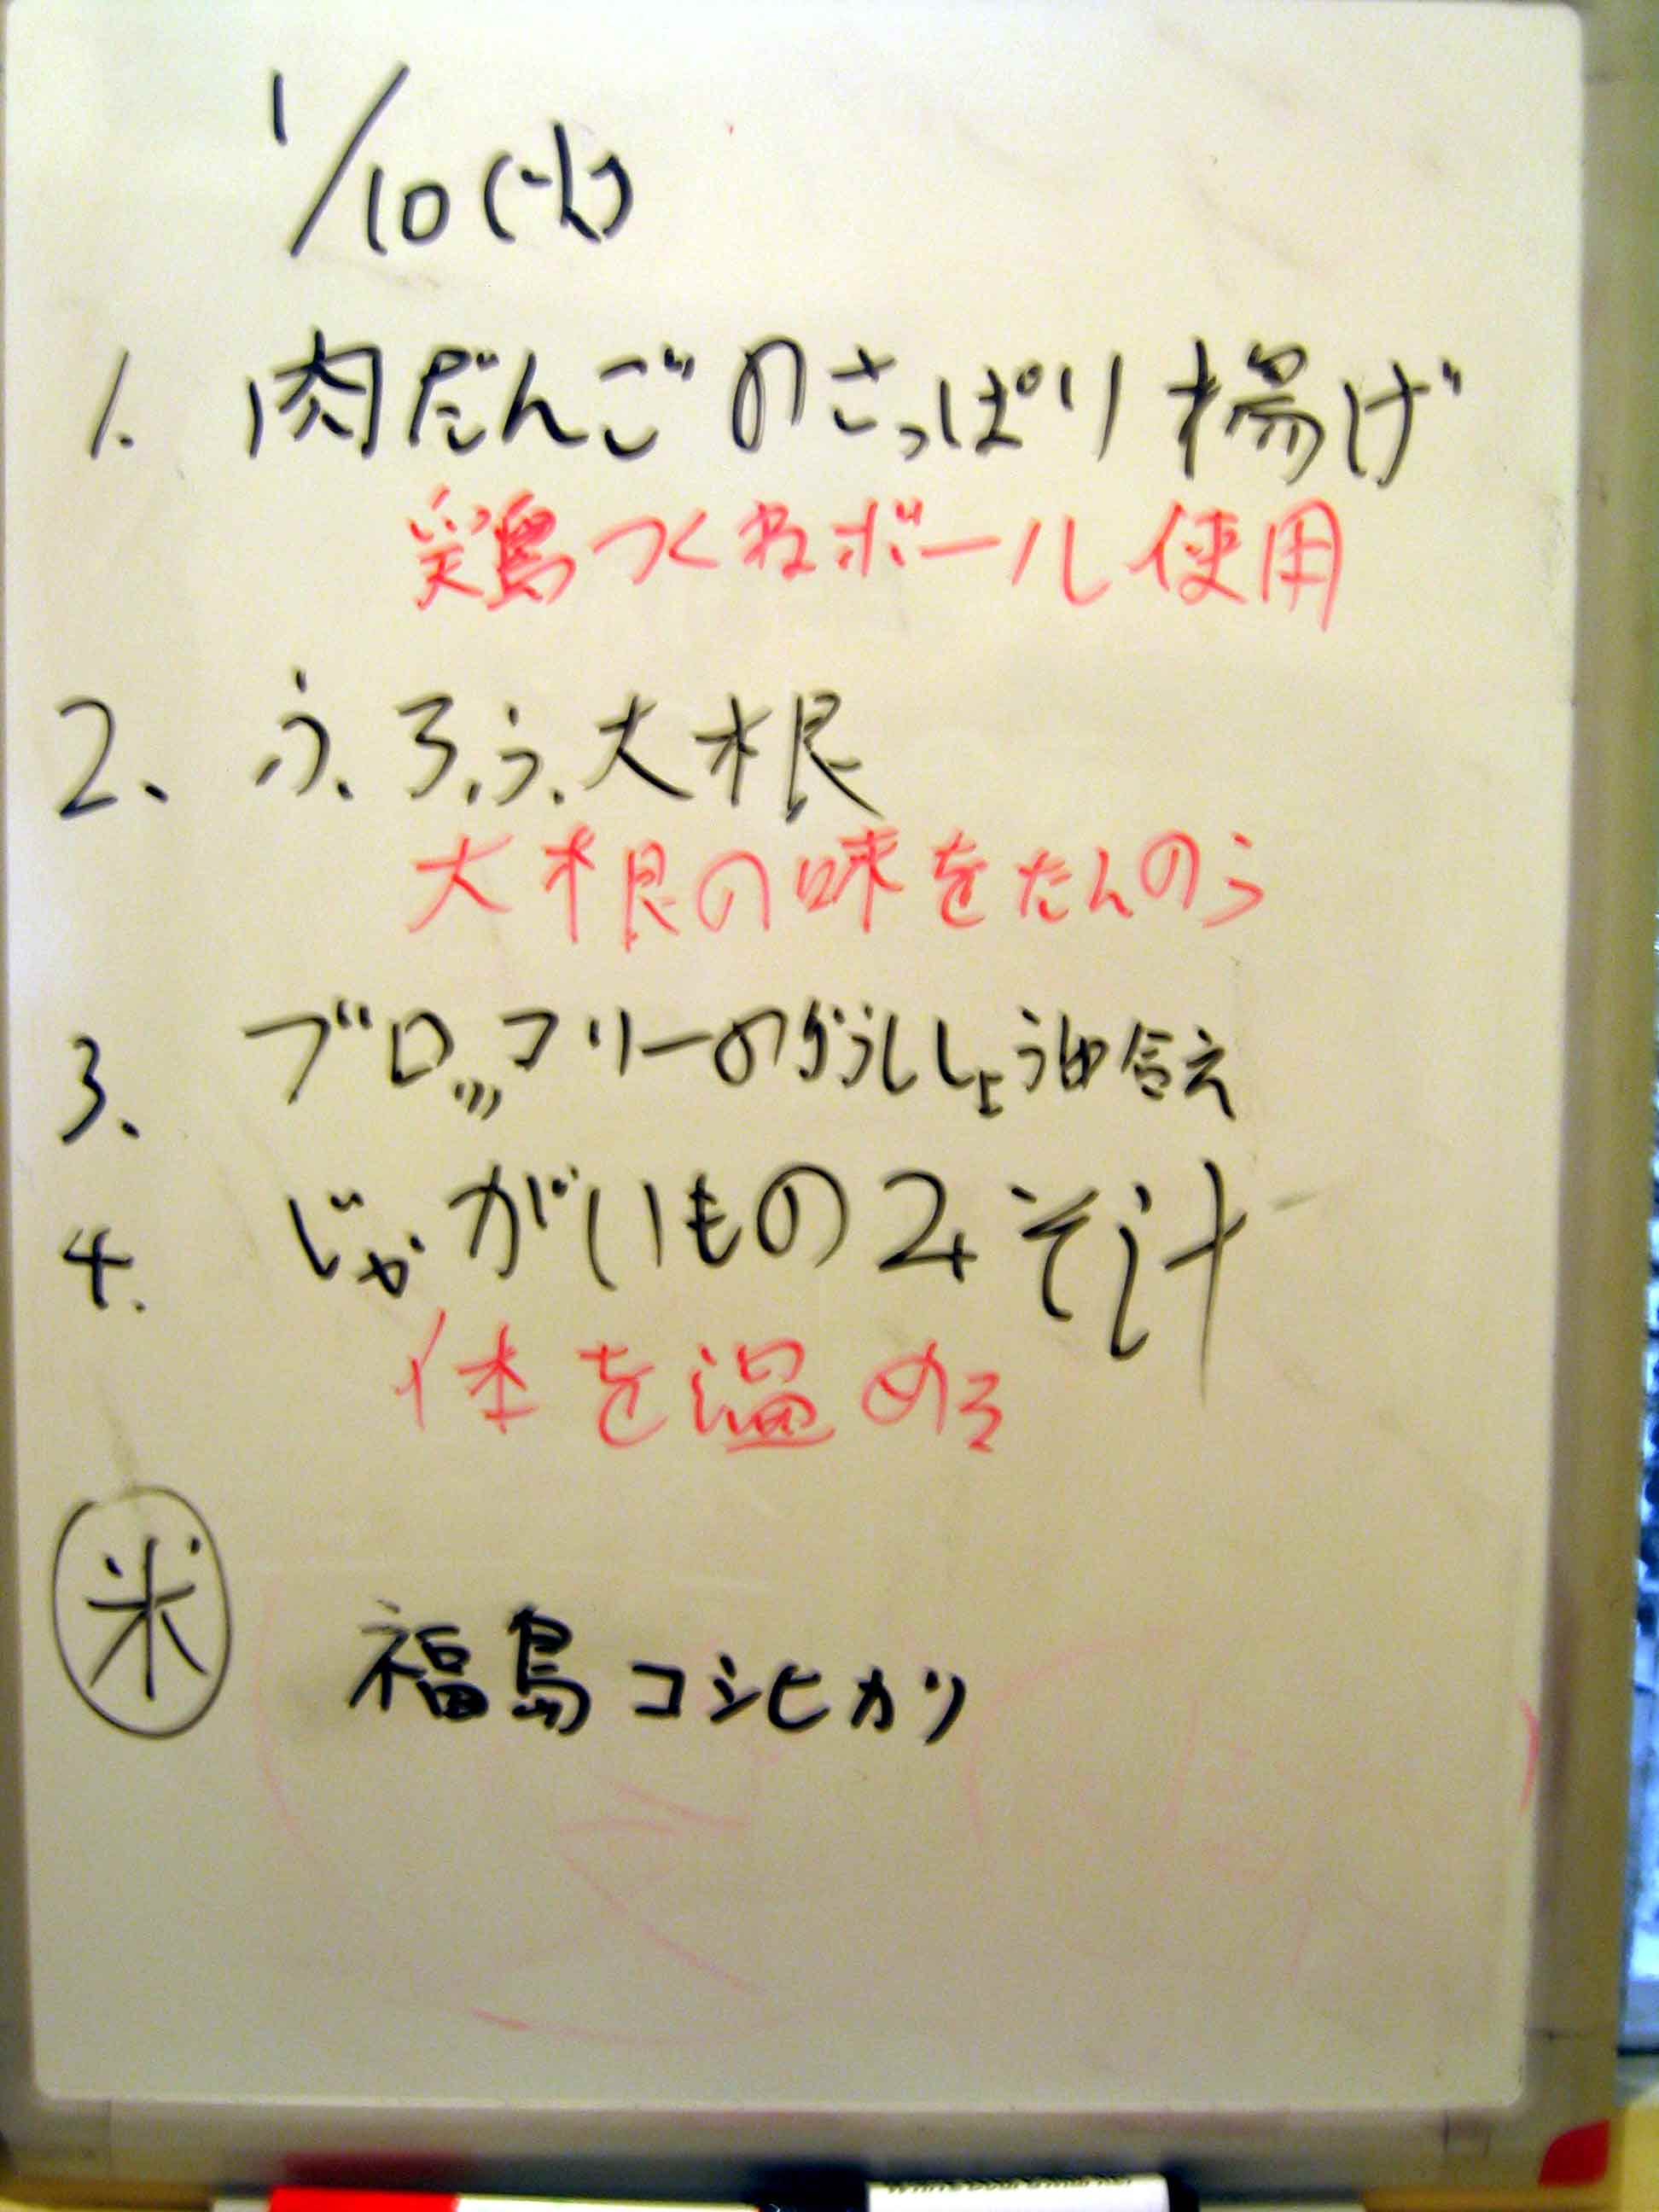 1/10(水)
1. 肉だんごのさっぱり揚げ
鶏つくねボール使用
2、ふろふ大根
大根の味をたんのう
3、ブロッコリーのからししょう油合え
4. じゃがいものみそ汁
体を温める
米 福島コシヒカリ